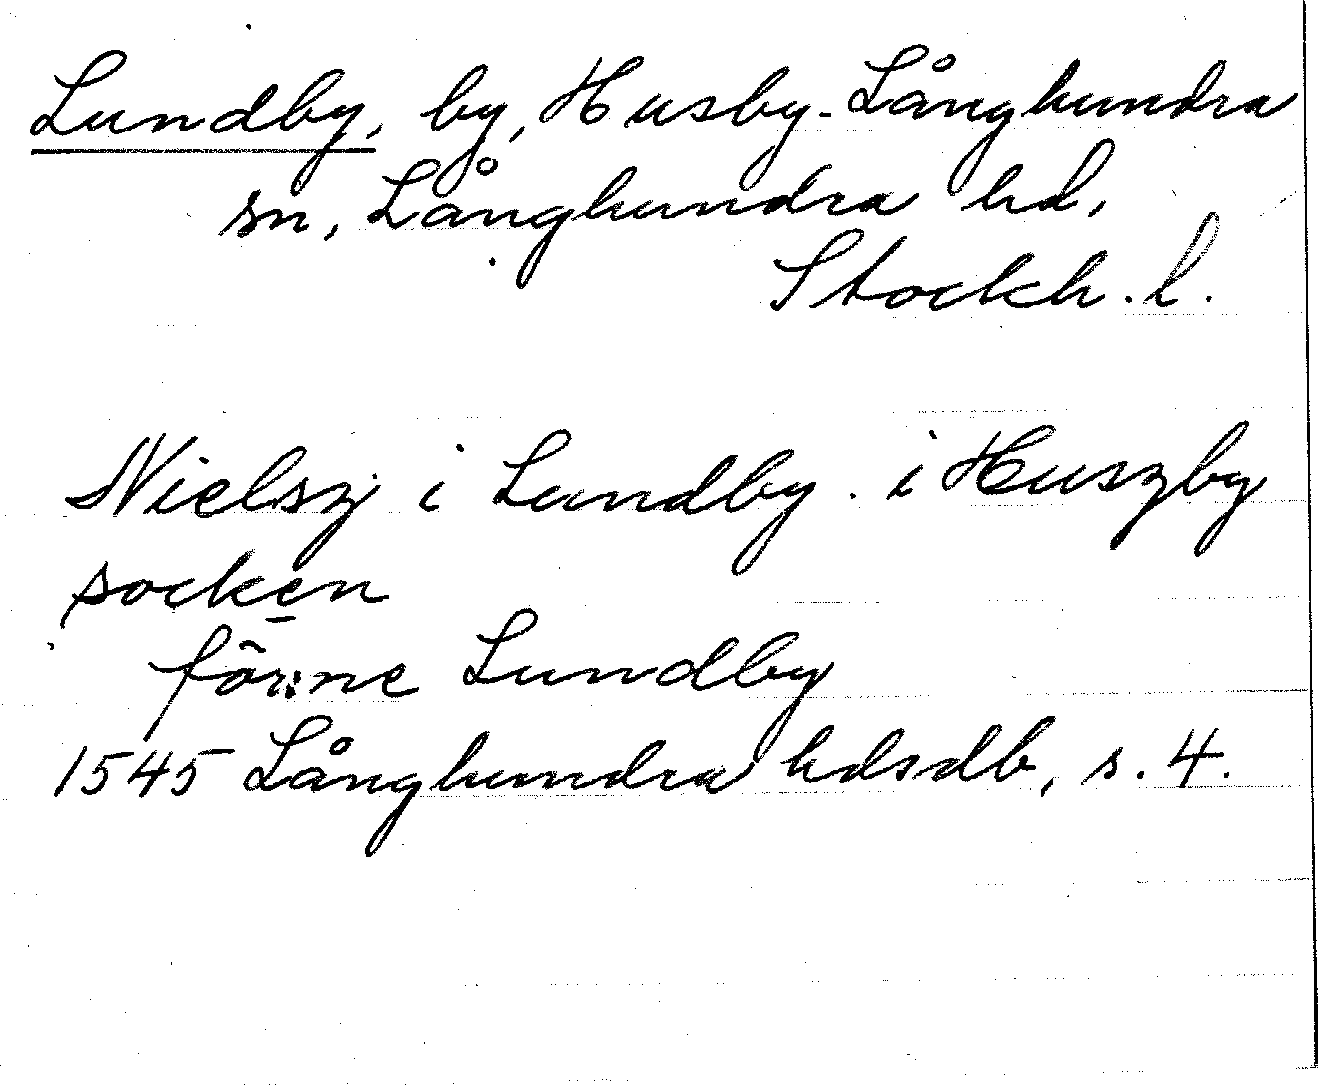 Lundby, by, Husby-Långhundra
sn, Långhundra hd,
Stockh. l.
Nielsz i Lundby. i Huszby
socken
förne Lundby
1545 Långhundra hdsdb, s. 4.